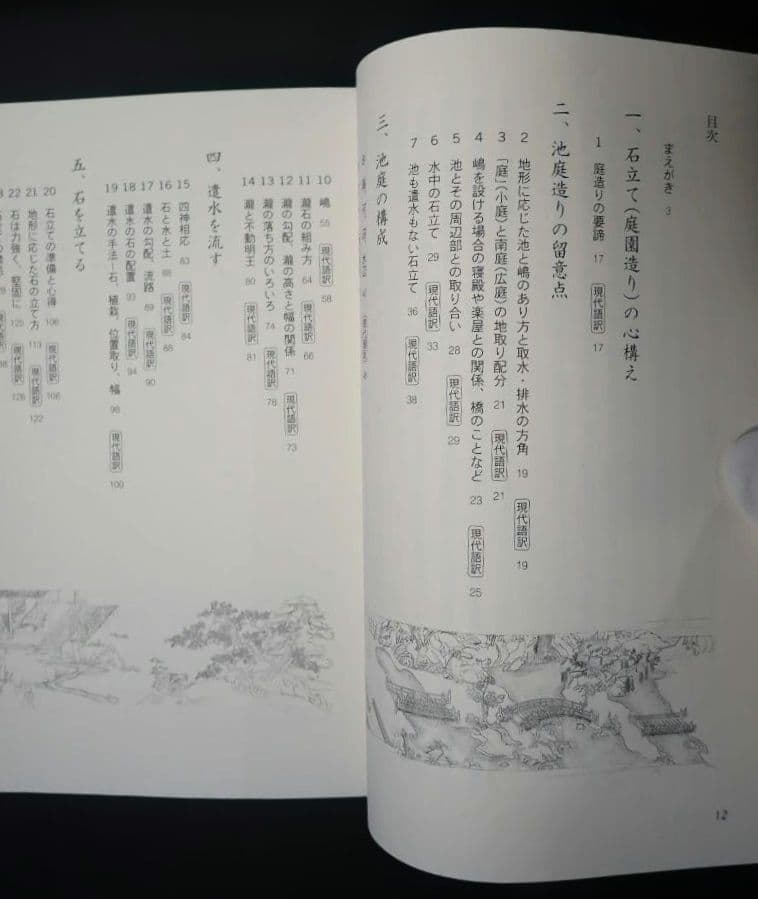 目次
まえがき 3
一、石立て(庭園造り)の心構え
1 庭造りの要諦 17 現代語訳 17
二、池庭造りの留意点
2 地形に応じた池と嶋のあり方と取水・排水の方角 19 現代語訳 19
3 「庭」(小庭)と南庭(広庭)の地取り配分 21 現代語訳 21
4 嶋を設ける場合の寝殿や楽屋との関係、橋のことなど 23 現代語訳 25
5 池とその周辺部との取り合い 28 現代語訳 29
6 水中の石立て 29 現代語訳 33
7 池も遣水もない石立て 36 現代語訳 38
三、池庭の構成
12
10 嶋 55 現代語訳 58
11 瀧石の組み方 64 現代語訳 66
12 瀧の勾配、瀧の高さと幅の関係 71 現代語訳 73
13 瀧の落ち方のいろいろ 74 現代語訳 78
14 瀧と不動明王 80 現代語訳 81
四、遣水を流す
15 四神相応 83 現代語訳 84
16 石と水と土 88 現代語訳 88
17 遣水の勾配、流路 89 現代語訳 90
18 遣水の石の配置 93 現代語訳 94
19 遣水の手法―石、植栽、位置取り、幅 98 現代語訳 100
五、石を立てる
20 石立ての準備と心得 106 現代語訳 108
21 地形に応じた石の立て方 113 現代語訳 122
22 石は力強く、堅固に 125 現代語訳 126